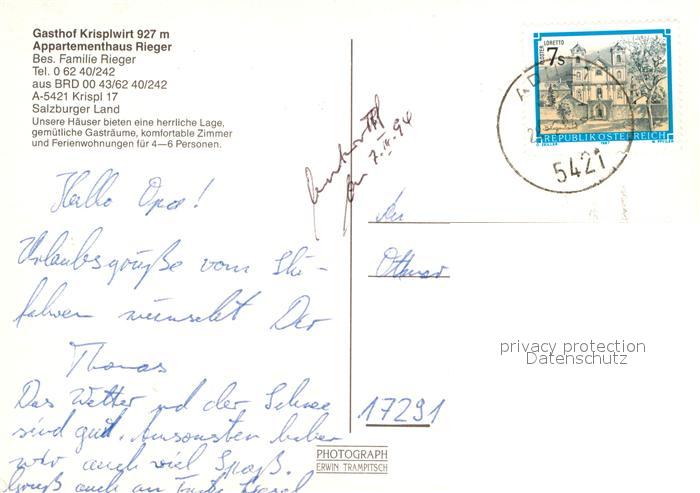 Gasthof Krisplwirt 927 m
Appartementhaus Rieger
Bes. Familie Rieger
Tel. 0 62 40/242
aus BRD 00 43/62 40/242
A-5421 Krispl 17
Salzburger Land
Unsere Häuser bieten eine herrliche Lage,
gemütliche Gasträume, komfortable Zimmer
und Ferienwohnungen für 4—6 Personen.
STIFT LORETTO
7s
REPUBLIK ÖSTERREICH
1987
5421
7.IV.94
Hallo Opa!
Urlaubsgrüße vom Ski-
fahren wünscht Dir
Thomas
Das Wetter und der Schnee
sind gut. Ansonsten haben
wir auch viel Spaß.
Gruß auch an Tante
An
Othmar
17291
privacy protection
Datenschutz
PHOTOGRAPH
ERWIN TRAMPITSCH